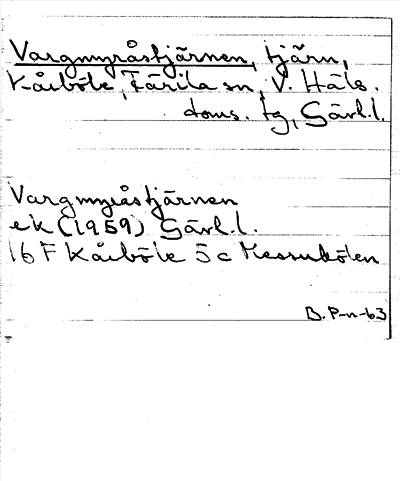 Vargmyråstjärnen, tjärn,
Kårböle, Färila sn, V. Häls.
doms. tg, Gävl.l.
Vargmyråstjärnen
ek (1959) Gävl.l.
16 F Kårböle 5 c Messubölen
B. P-n-63